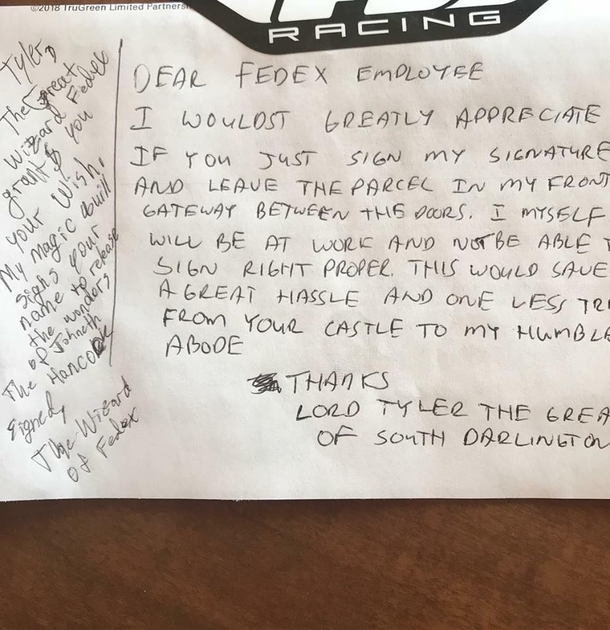 ©2018 TruGreen Limited Partners
RACING
DEAR FEDEX EMPLOYEE
I WOULDST GREATLY APPRECIATE
IF YOU JUST SIGN MY SIGNATURE
AND LEAVE THE PARCEL IN MY FRONT
GATEWAY BETWEEN THE DOORS. I MYSELF
WILL BE AT WORK AND NOT BE ABLE T
SIGN RIGHT PROPER. THIS WOULD SAVE
A GREAT HASSLE AND ONE LESS TRI
FROM YOUR CASTLE TO MY HUMBLE
ABODE
THANKS
LORD TYLER THE GREA
OF SOUTH DARLINGTON
Tyler,
The Great
Wizard Fedex
grants you
your Wish.
My magic quill
signs your
name to release
the wonders
of Johneth
The Hancock
Signed,
The Wizard
of Fedex